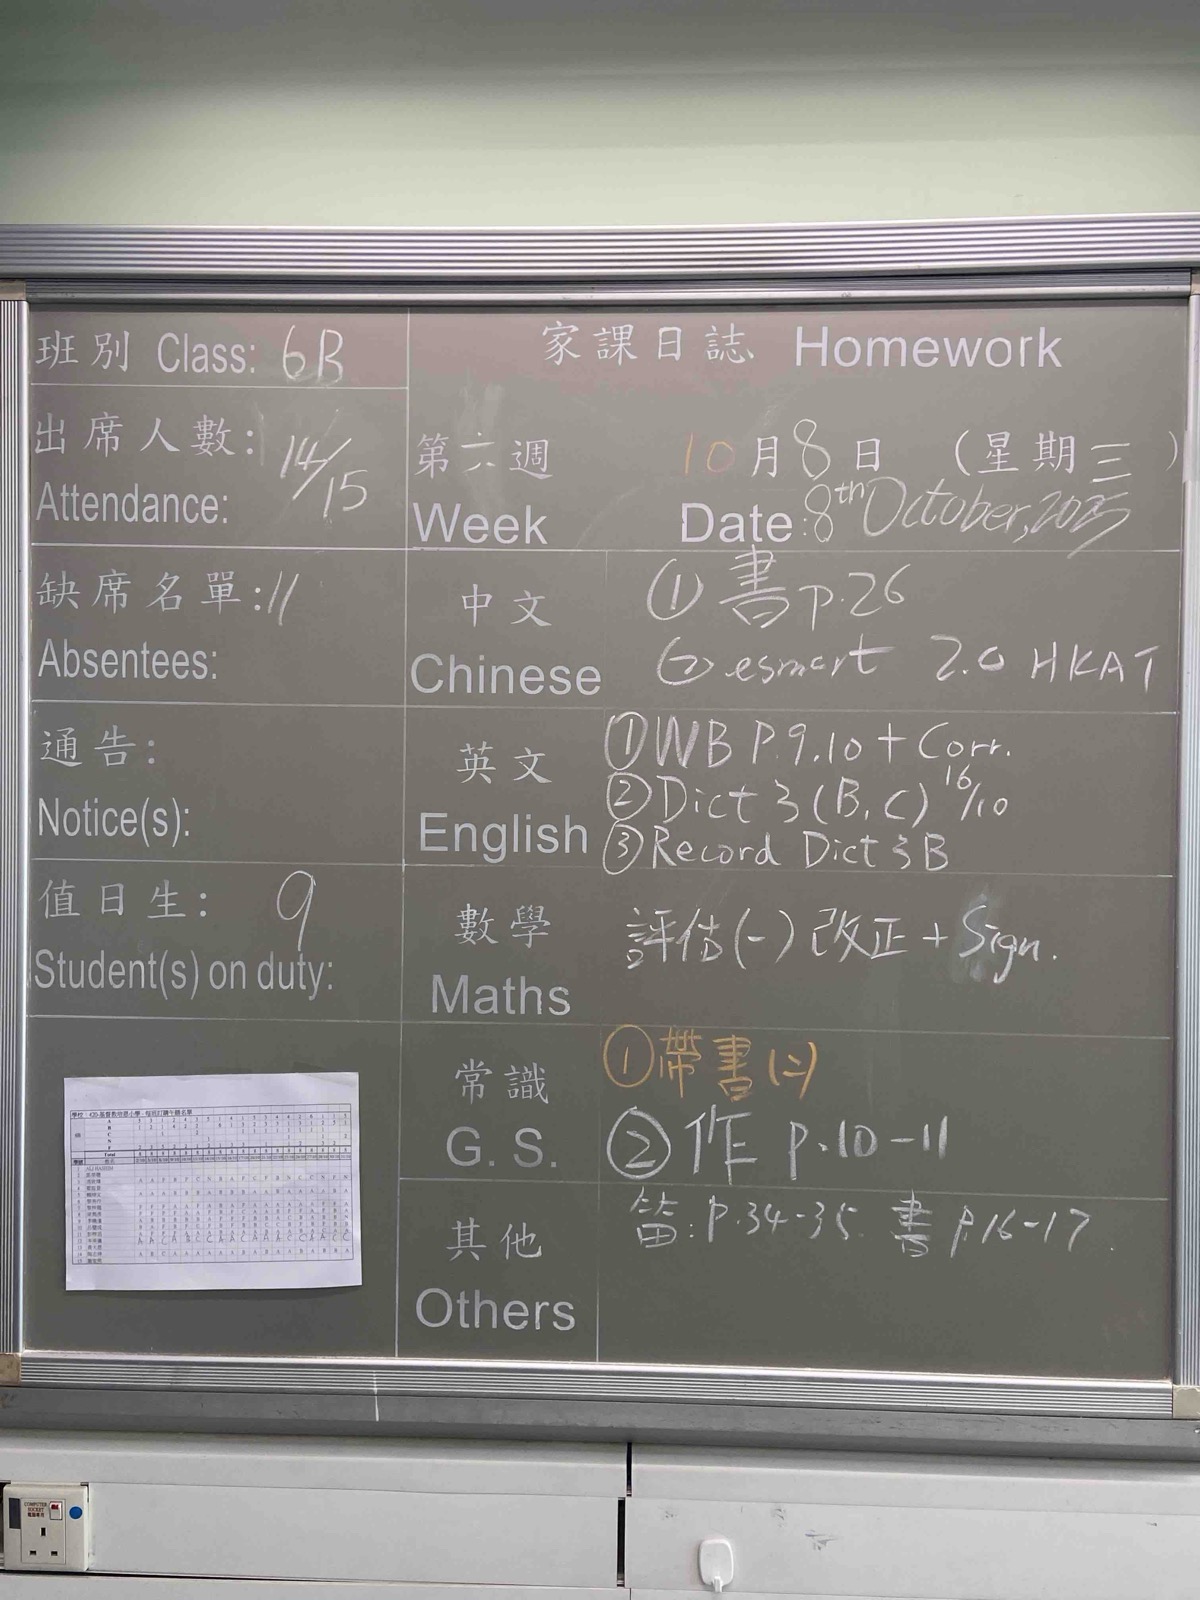 班別 Class: 6B
家課日誌 Homework
出席人數: 14/15
Attendance:
第六週 10月8日 (星期三)
Week Date: 8th October, 2025
缺席名單: 11
Absentees:
中文 ① 書 p.26
Chinese ② esmart 2.0 HKAT
通告:
Notice(s):
英文 ① WB P.9.10 + Corr.
English ② Dict 3 (B, C) 16/10
③ Record Dict 3B
值日生: 9
Student(s) on duty:
數學 評估(一) 改正 + Sign.
Maths
常識 ① 帶書(二)
G. S. ② 作 p.10-11
其他 笛: p.34-35 書 p.16-17.
Others
Total
COMPUTER
SOCKET